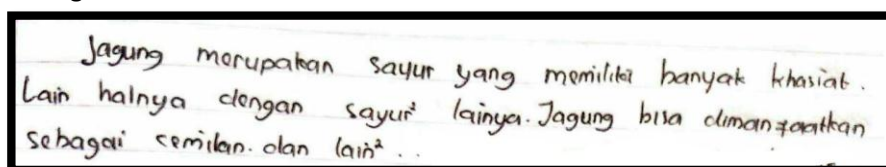 Jagung merupakan sayur yang memiliki banyak khasiat.
Lain halnya dengan sayur² lainya. Jagung bisa dimanfaatkan
sebagai cemilan. dan lain² . .